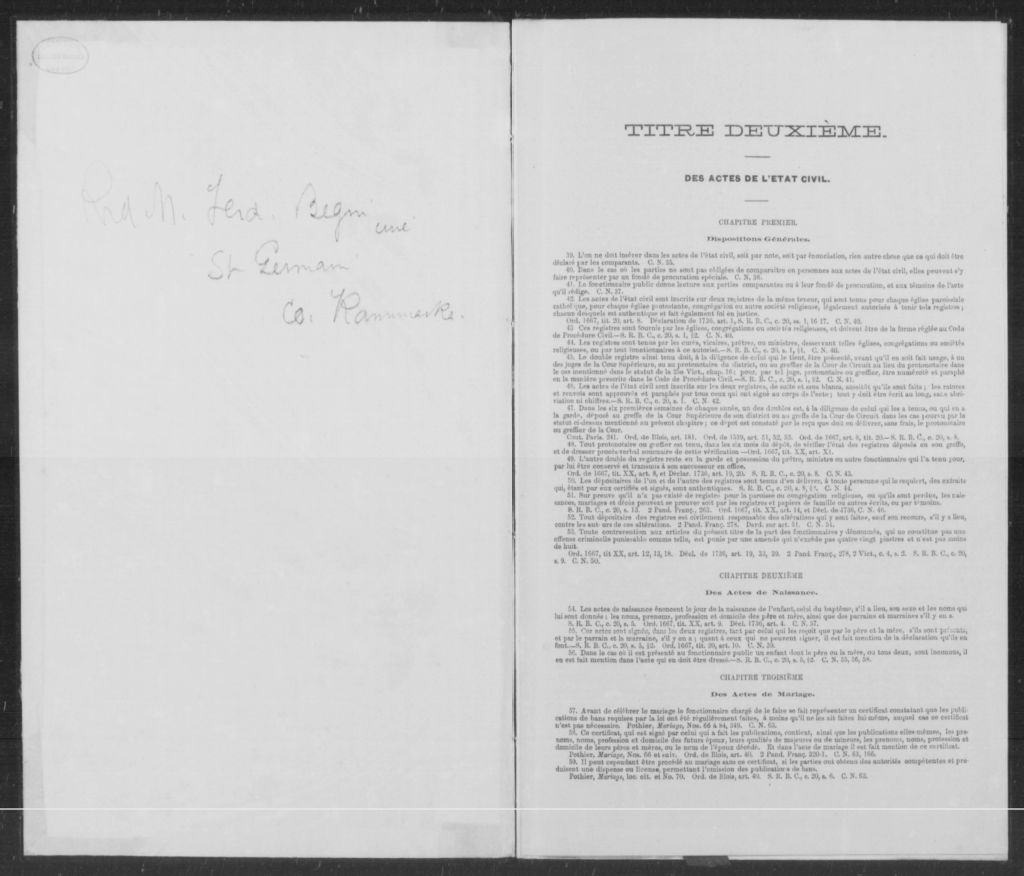 Rvd M. Ferd. Begin
curé
St Germain
Co. Kamouraska.
TITRE DEUXIÈME.
DES ACTES DE L'ETAT CIVIL.
CHAPITRE PREMIER.
Dispositions Générales.
39. L'on ne doit insérer dans les actes de l'état civil, soit par note, soit par énonciation, rien autre chose que ce qui doit être
déclaré par les comparants. C. N. 35.
40. Dans le cas où les parties ne sont pas obligées de comparaître en personnes aux actes de l'état civil, elles peuvent s'y
faire représenter par un fondé de procuration spéciale. C. N. 36.
41. Le fonctionnaire public donne lecture aux parties comparantes ou à leur fondé de procuration, et aux témoins de l'acte
qu'il rédige. C. N. 37.
42. Les actes de l'état civil sont inscrits sur deux registres de la même teneur, qui sont tenus pour chaque église paroissiale
catholique, pour chaque église protestante, congrégation ou autre société religieuse, légalement autorisée à tenir tels registres ;
chacun desquels est authentique et fait également foi en justice.
Ord. 1667, tit. 20, art. 8. Déclaration de 1736, art. 1, S. R. B. C., c. 20, ss. 1, 16 17. C. N. 40.
43 Ces registres sont fournis par les églises, congrégations ou sociétés religieuses, et doivent être de la forme réglée au Code
de Procédure Civil.—S. R. B. C., c. 20, s. 1, §2. C. N. 40.
44. Les registres sont tenus par les curés, vicaires, prêtres, ou ministres, desservant telles églises, congrégations ou sociétés
religieuses, ou par tout fonctionnaires à ce autorisé.—S. R. B. C., c. 20, s. 1, §1. C. N. 40.
45. Le double registre ainsi tenu doit, à la diligence de celui qui le tient, être présenté, avant qu'il en soit fait usage, à un
des juges de la Cour Supérieure, ou au protonotaire du district, ou au greffier de la Cour de Circuit au lieu du protonotaire dans
le cas mentionné dans le statut de la 25e Vict., chap. 16 ; pour, par tel juge, protonotaire ou greffier, être numéroté et paraphé
en la manière prescrite dans le Code de Procédure Civil.—S. R. B. C., c. 20, s. 1, §2. C. N. 41.
46. Les actes de l'état civil sont inscrits sur les deux registres, de suite et sans blancs, aussitôt qu'ils sont faits ; les ratures
et renvois sont approuvés et paraphés par tous ceux qui ont signé au corps de l'acte ; tout y doit être écrit au long, sans abré-
viation ni chiffres.—S. R. B. C., c. 20, s. 1. C. N. 42.
47. Dans les six premières semaines de chaque année, un des doubles est, à la diligence de celui qui les a tenus, ou qui en a
la garde, déposé au greffe de la Cour Supérieure de son district ou au greffe de la Cour de Circuit dans les cas pourvu par le
statut ci-dessus mentionné au présent chapitre ; ce dépot est constaté par le reçu que doit en délivrer, sans frais, le protonotaire
ou greffier de la Cour.
Cout. Paris. 241. Ord. de Blois, art. 181. Ord. de 1539, art. 51, 52, 53. Ord. de 1667, art. 8, tit. 20.—S. R. B. C., c. 20, s. 8.
48. Tout protonotaire ou greffier est tenu, dans les six mois du dépôt, de vérifier l'état des registres déposés en son greffe,
et de dresser procès verbal sommaire de cette vérification —Ord. 1667, tit. XX, art. XI.
49. L'autre double du registre reste en la garde et possession du prêtre, ministre ou autre fonctionnaire qui l'a tenu pour,
par lui être conservé et transmis à son successeur en office.
Ord. de 1667, tit. XX, art. 8, et Déclar. 1736, art. 19, 20. S. R. B. C., c. 20, s. 8. C. N. 43.
50. Les dépositaires de l'un et de l'autre des registres sont tenus d'en délivrer, à toute personne qui le requiert, des extraits
qui, étant par eux certifiés et signés, sont authentiques. S. R. B. C., c. 20, s. 8, §2. C. N. 44.
51. Sur preuve qu'il n'a pas existé de registre pour la paroisse ou congrégation religieuse, ou qu'ils sont perdus, les nais-
sances, mariages et décès peuvent se prouver soit par les registres et papiers de famille ou autres écrits, ou par témoins.
S. R. B. C., c. 20, s. 13. 2 Pand. Franç., 263. Ord. 1667, tit. XX, art. 14, et Décl. de 1736, C. N. 46.
52. Tout dépositaire des registres est civilement responsable des altérations qui y sont faites, sauf son recours, s'il y a lieu,
contre les auteurs de ces altérations. 2 Pand. Franç. 278. Dard. sur art. 51. C. N. 51.
53. Toute contravention aux articles du présent titre de la part des fonctionnaires y dénommés, qui ne constitue pas une
offense criminelle punissable comme telle, est punie par une amende qui n'excède pas quatre vingt piastres et n'est pas moins
de huit.
Ord. 1667, tit XX, art. 12, 13, 18. Décl. de 1736, art. 19, 33, 39. 2 Pand. Franç., 278, 2 Vict., c. 4, s. 2. S. R. B. C., c. 20,
s. 9. C. N. 50.
CHAPITRE DEUXIÈME
Des Actes de Naissance.
54. Les actes de naissance énoncent le jour de la naissance de l'enfant, celui du baptême, s'il a lieu, son sexe et les noms qui
lui sont donnés ; les noms, prenoms, profession et domicile des père et mère, ainsi que des parrains et marraines s'il y en a.
S. R. B. C., c. 20, s. 5. Ord. 1667, tit. XX, art. 9. Décl. 1736, art. 4. C. N. 57.
55. Ces actes sont signés, dans les deux registres, tant par celui qui les reçoit que par le père et la mère, s'ils sont présents,
et par le parrain et la marraine, s'il y en a ; quant à ceux qui ne peuvent signer, il est fait mention de la déclaration qu'ils en
font.—S. R. B. C., c. 20, s. 5, §2. Ord. 1667, tit. 20, art. 10. C. N. 39.
56. Dans le cas où il est présenté au fonctionnaire public un enfant dont le père ou la mère, ou tous deux, sont inconnus, il
en est fait mention dans l'acte qui en doit être dressé.—S. R. B. C., c. 20, s. 5, §2. C. N. 55, 56, 58.
CHAPITRE TROISIÈME
Des Actes de Mariage.
57. Avant de célébrer le mariage le fonctionnaire chargé de le faire se fait représenter un certificat constatant que les publi-
cations de bans requises par la loi ont été régulièrement faites, à moins qu'il ne les ait faites lui même, auquel cas ce certificat
n'est pas nécessaire. Pothier, Mariage, Nos. 66 à 84, 349. C. N. 63.
58. Ce certificat, qui est signé par celui qui a fait les publications, contient, ainsi que les publications elles-mêmes, les pre-
noms, noms, profession et domicile des futurs époux, leurs qualités de majeurs ou de mineurs, les prenoms, noms, profession et
domicile de leurs pères et mères, ou le nom de l'époux décédé. Et dans l'acte de mariage il est fait mention de ce certificat.
Pothier, Mariage, Nos. 66 et suiv. Ord. de Blois, art. 40. 2 Pand. Franç. 320-1. C. N. 63, 166.
59. Il peut cependant être procédé au mariage sans ce certificat, si les parties ont obtenu des autorités compétentes et pro-
duisent une dispense ou license, permettant l'omission des publications de bans.
Pothier, Mariage, loc. cit. et No. 70. Ord. de Blois, art. 40. S. R. B. C., c. 20, s. 6. C. N. 63.